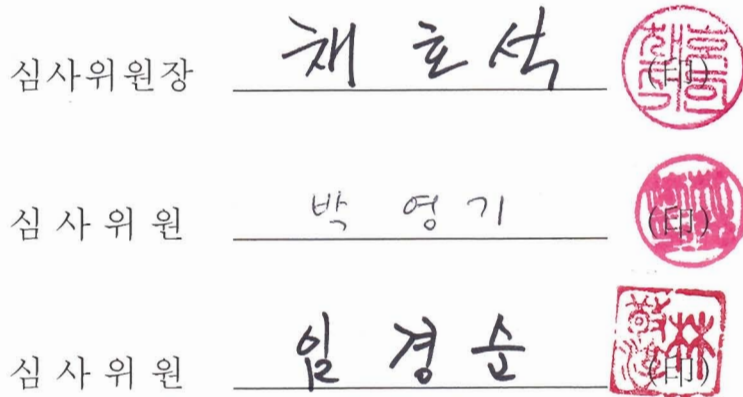 심사위원장 채호석 (印)
심사위원 박영기 (印)
심사위원 임경순 (印)